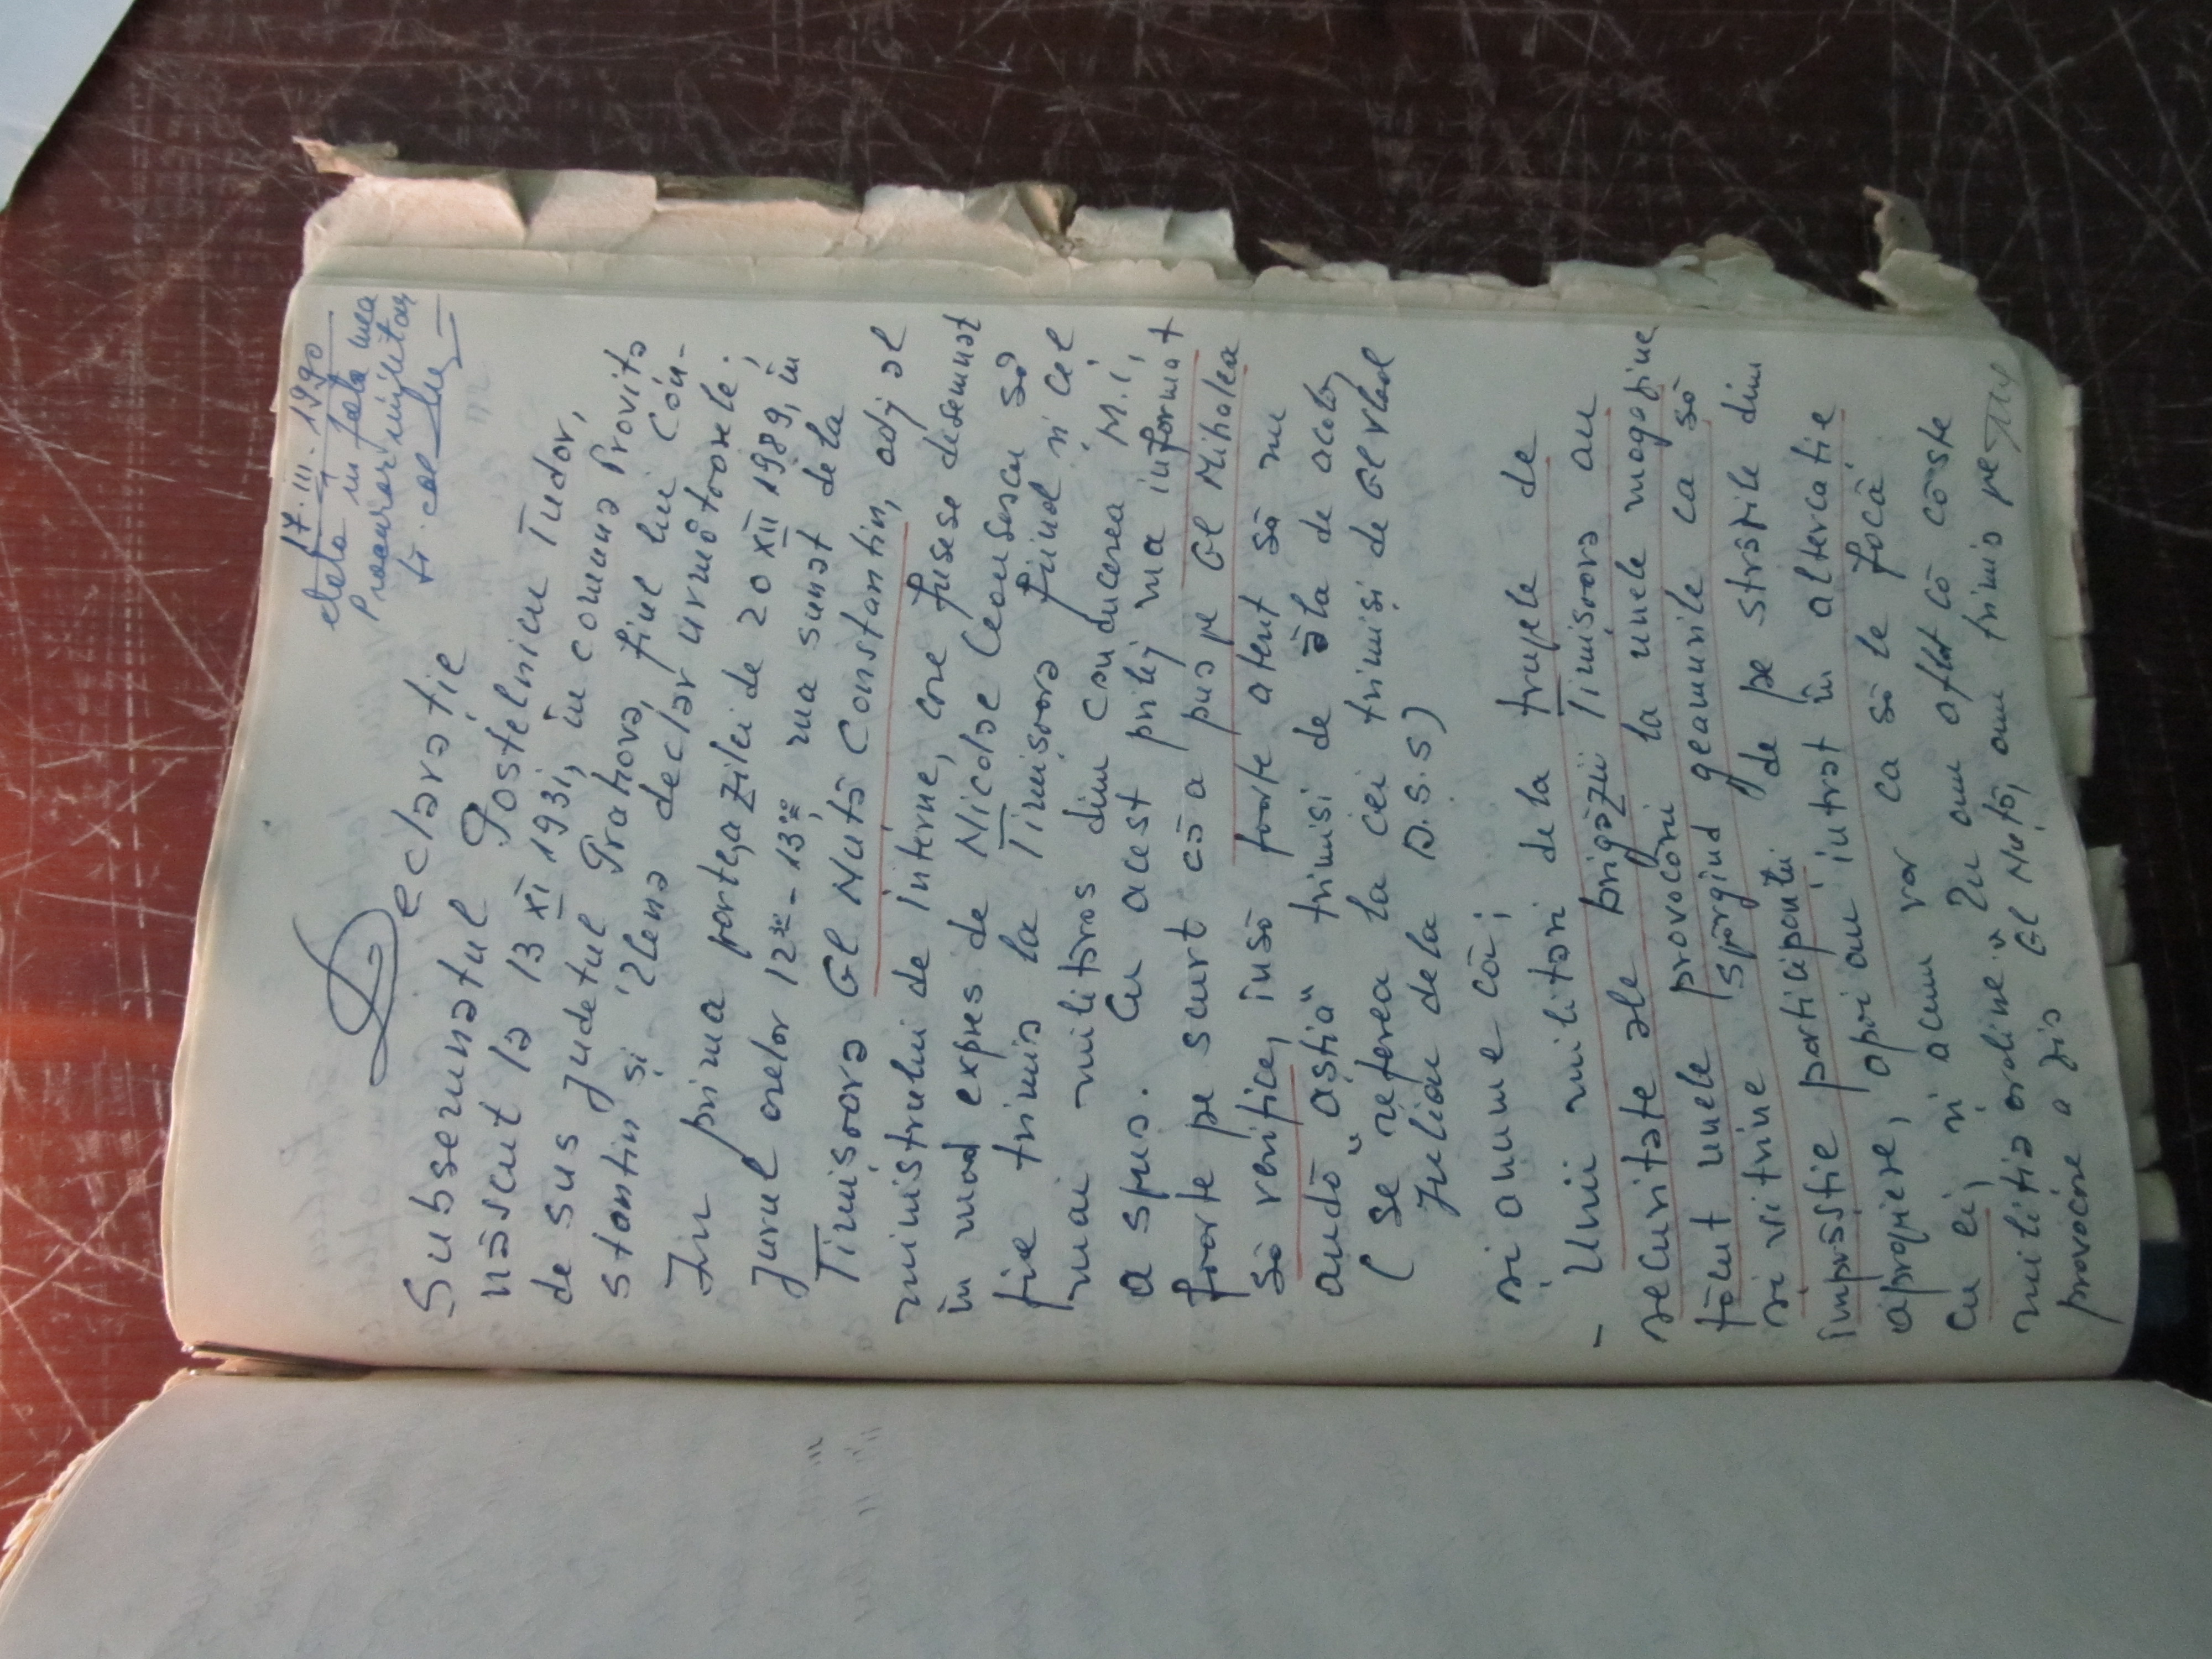 17.III.1990
data în fața mea
Procuror militar
lt. col
Declarație
Subsemnatul Postelnicu Tudor,
născut la 13 XI 1931, în comuna Provița
de sus județul Prahova, fiul lui Con-
stantin și Ilena declar următoarele:
In prima parte a zilei de 20 XII 1989, în
jurul orelor 12 30 - 13 00, ma sunat de la
Timișoara Gl Nuță Constantin, adj al
ministrului de interne, care fusese desemnat
în mod expres de Nicolae Ceaușescu să
fie trimis la Timișoara fiind și cel
mai militaros din conducerea M.I,
a spus. Cu acest prilej ma informat
foarte pe scurt că a pus pe Gl Mihalea
să verifice, însă foarte atent să nu
audă "aștia" trimiși de ăla de acolo,
(se referea la cei trimiși de Gl Vlad
Iulian de la D.S.S)
și anume că;
- Unii militari de la trupele de
securitate ale brigăzii Timișoara au
făcut unele provocări la unele magazine
și vitrine spărgînd geamurile ca să
împrăștie participanții de pe străzile din
apropiere, apoi au intrat în altercație
cu ei, și acum vor ca să le facă
miliția ordine". Eu am aflat că este
provocare a zis Gl Nuță, am trimis pe